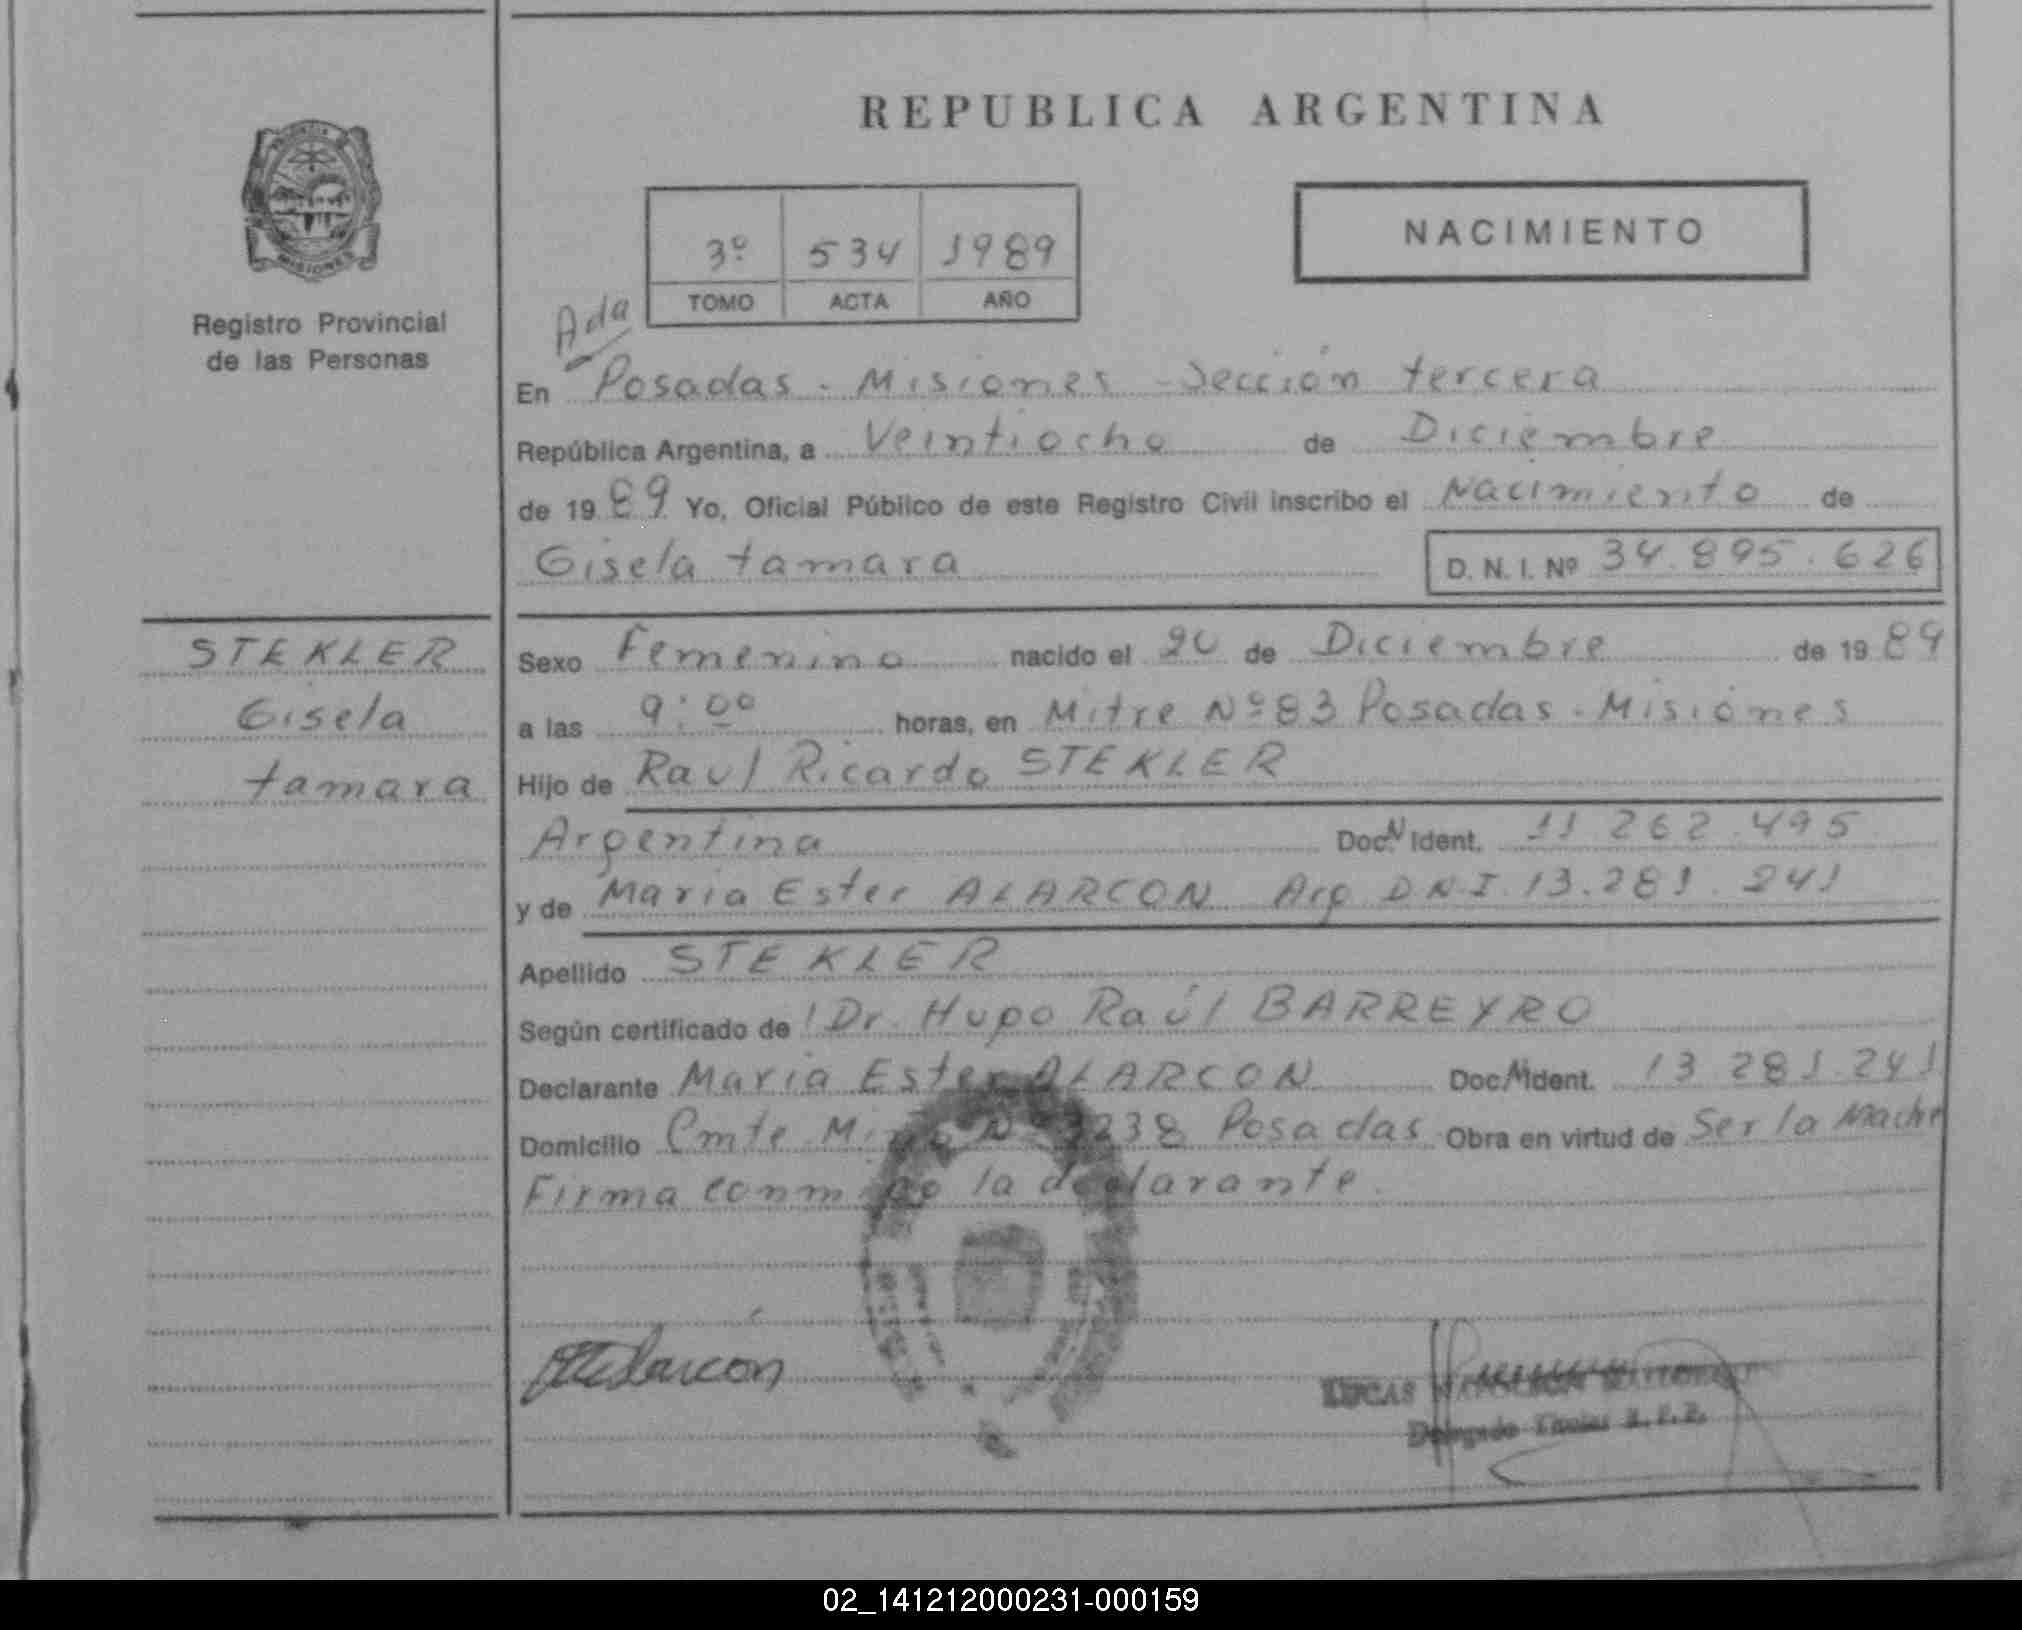 REPUBLICA ARGENTINA
NACIMIENTO
3º 534 1989
TOMO ACTA AÑO
MISIONES
Registro Provincial
de las Personas
Ada
En Posadas - Misiones - Sección tercera
República Argentina, a Veintiocho de Diciembre
de 1989 Yo, Oficial Público de este Registro Civil inscribo el Nacimiento de
Gisela tamara D. N. I. Nº 34.895.626
STEKLER
Gisela
tamara
Sexo Femenino nacido el 20 de Diciembre de 1989
a las 9:00 horas, en Mitre Nº 83 Posadas - Misiones
Hijo de Raul Ricardo STEKLER
Argentina Doc. N Ident. 11.262.495
y de Maria Ester ALARCON Arg D.N.I. 13.281.241
Apellido STEKLER
Según certificado de Dr. Hugo Raúl BARREYRO
Declarante Maria Ester ALARCON Doc. N Ident. 13.281.241
Domicilio Cmte Nº 3238 Posadas Obra en virtud de Ser la Madre
Firma conmigo la declarante.
Alarcón
LUCAS
Delegado R. P. P.
02_141212000231-000159